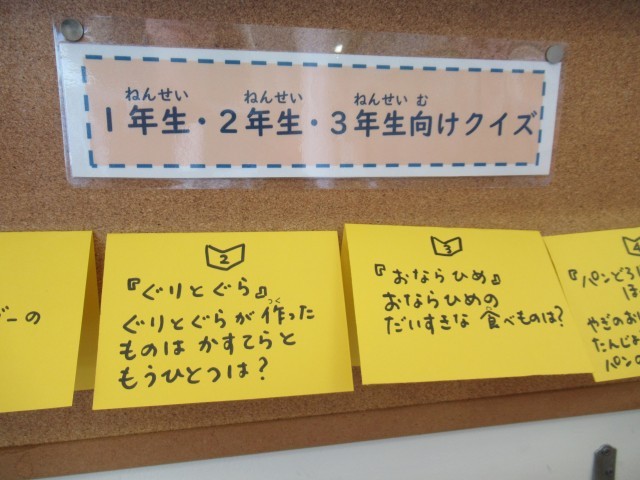 1年生・2年生・3年生向けクイズ
ねんせい ねんせい ねんせい む
ーの
2
『ぐりとぐら』
ぐりとぐらが作った
つく
ものは かすてらと
もうひとつは?
3
『おならひめ』
おならひめの
だいすきな 食べものは?
た
4
『パンどろ
ほ
やぎのお
たんじょ
パンの